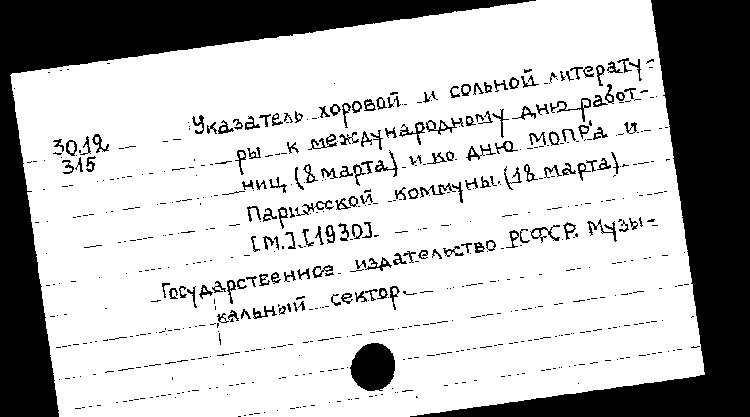 Указатель хоровой и сольной литерату-
30.12
315
ры к международному дню работ-
ниц (8 марта) и ко дню МОПР'а и
Парижской коммуны (18 марта).
[М.] [1930]
Государственное издательство РСФСР. Музы-
кальный сектор.